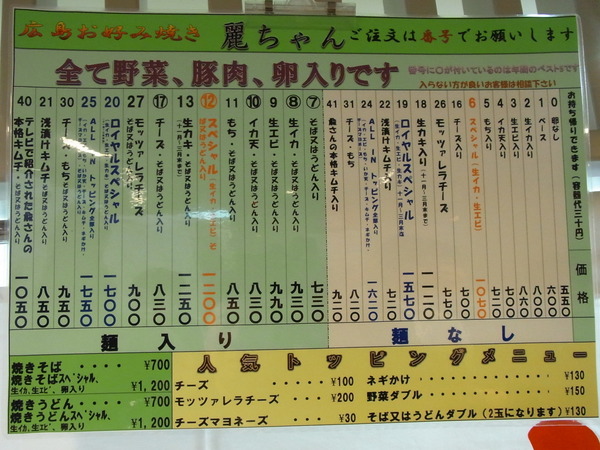 広島お好み焼き 麗ちゃん ご注文は番号でお願いします
全て野菜、豚肉、卵入りです
番号に○が付いているのは年間のベスト5です
入らない方が良いお客様は相談下さい
お持ち帰りできます(容器代三十円)
価格
0 卵なし 五五〇
1 ベース 六〇〇
2 生イカ入り 八六〇
3 生エビ入り
4 イカ天入り 七〇〇
5 もち入り 七二〇
6 スペシャル(生イカ・生エビ) 一〇七〇
16 チーズ入り 七〇〇
26 モッツァレラチーズ 七七〇
18 生カキ入り(十一月~三月末まで) 一一二〇
19 ロイヤルスペシャル 一五七〇
22 浅漬けキムチ入り 七二〇
24 ALL IN トッピング全種入り 一六二〇
31 チーズ・もち 八二〇
41 粂さんの本格キムチ入り 九二〇
⑦ そば又はうどん入り 七三〇
⑧ イカ天・そば又はうどん入り 八三〇
⑨ 生エビ・そば又はうどん入り 九九〇
⑩ イカ天・そば又はうどん入り 八三〇
11 もち・そば又はうどん入り 八五〇
⑫ スペシャル(生イカ・生エビ)そば又はうどん入り 一二〇〇
13 生カキ・そば又はうどん入り(十一月~三月末まで) 一二五〇
⑰ チーズ・そば又はうどん入り 八三〇
27 モッツァレラチーズ・そば又はうどん入り 九〇〇
20 ロイヤルスペシャル 一七〇〇
25 ALL IN トッピング全種入り 一七五〇
30 チーズ・もちそば又はうどん入り 九五〇
21 浅漬けキムチ・そば又はうどん入り 八五〇
40 テレビで紹介された粂さんの本格キムチ・そば又はうどん入り 一〇五〇
麺入り 麺なし
焼きそば ・・・・ ¥700
焼きそばスペシャル、
生イカ、生エビ、卵入り ¥1,200
焼きうどん ・・・・ ¥700
焼きうどんスペシャル、
生イカ、生エビ、卵入り ¥1,200
人気トッピングメニュー
チーズ ・・・・・・・ ¥100
モッツァレラチーズ ・・・ ¥200
チーズマヨネーズ ¥30
ネギかけ ・・・・・・・ ¥130
野菜ダブル ・・・・・・ ¥150
そば又はうどんダブル(2玉になります) ¥130